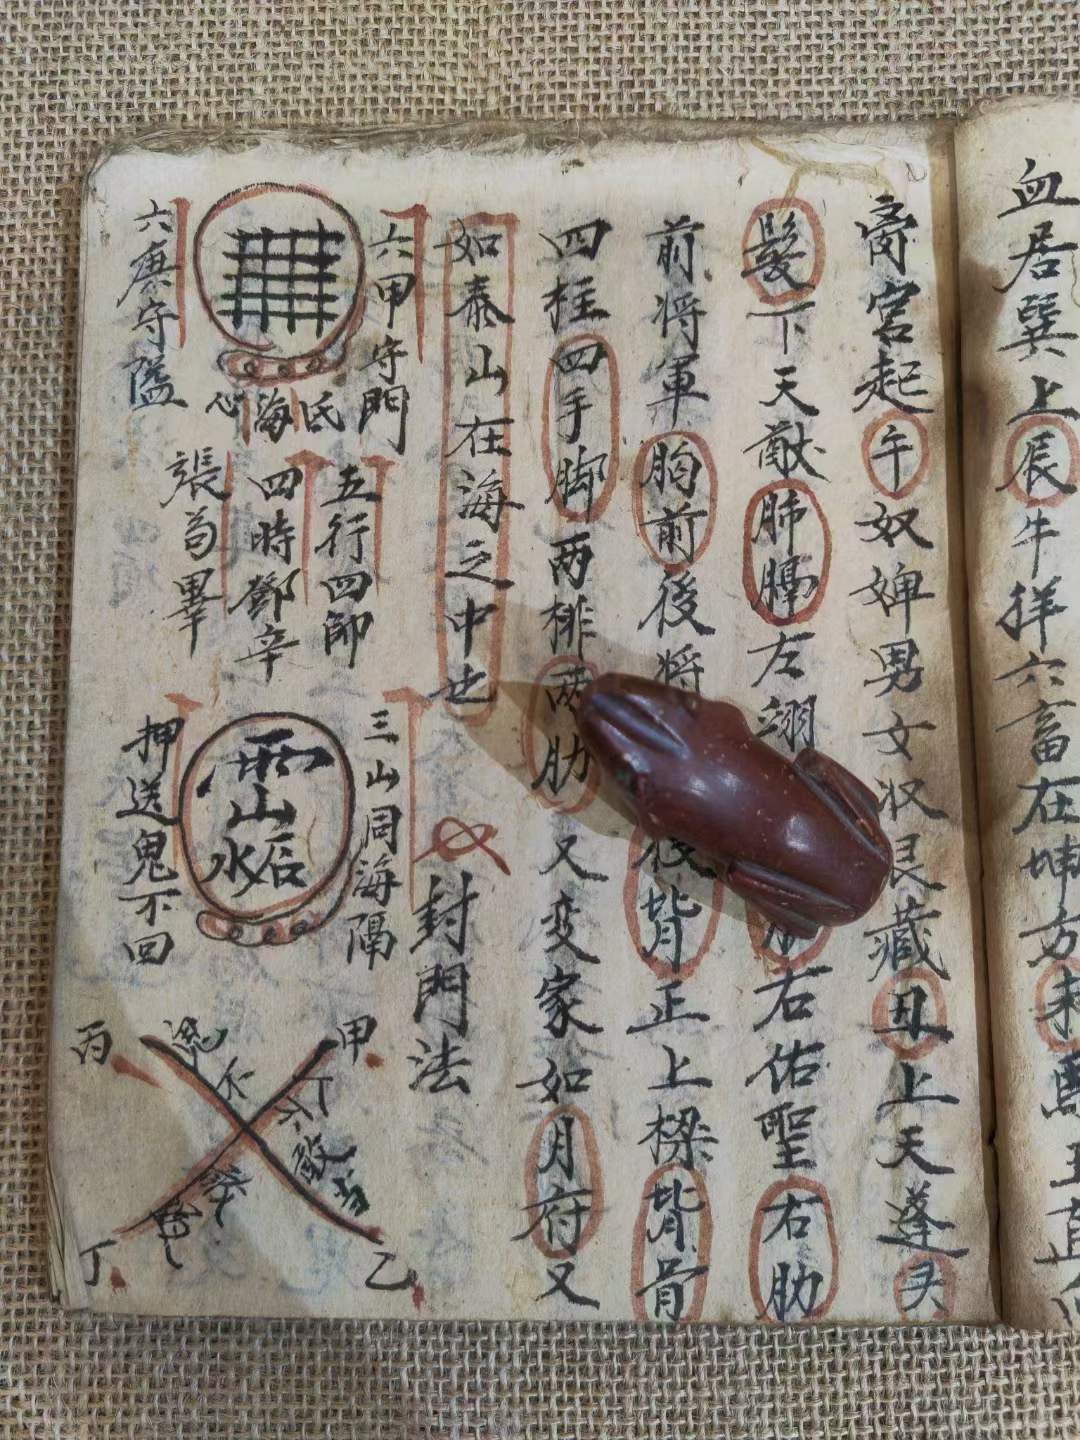 血居巽上辰牛羊六畜在坤方未馬
宮起午奴婢男女収艮藏丑上天蓬头
髮下天猷肺膈左翊右佑聖右肋
前将軍胸前後将背正上樑背骨
四柱四手脚两排两肋又变家如月府又
如泰山在海之中也
封門法
六甲守門
六庚守隘
心海氏
五行四師
四時鄧辛
張苟畢
三山同海隔
雨山水后
押送鬼不回
甲
乙
丙
丁